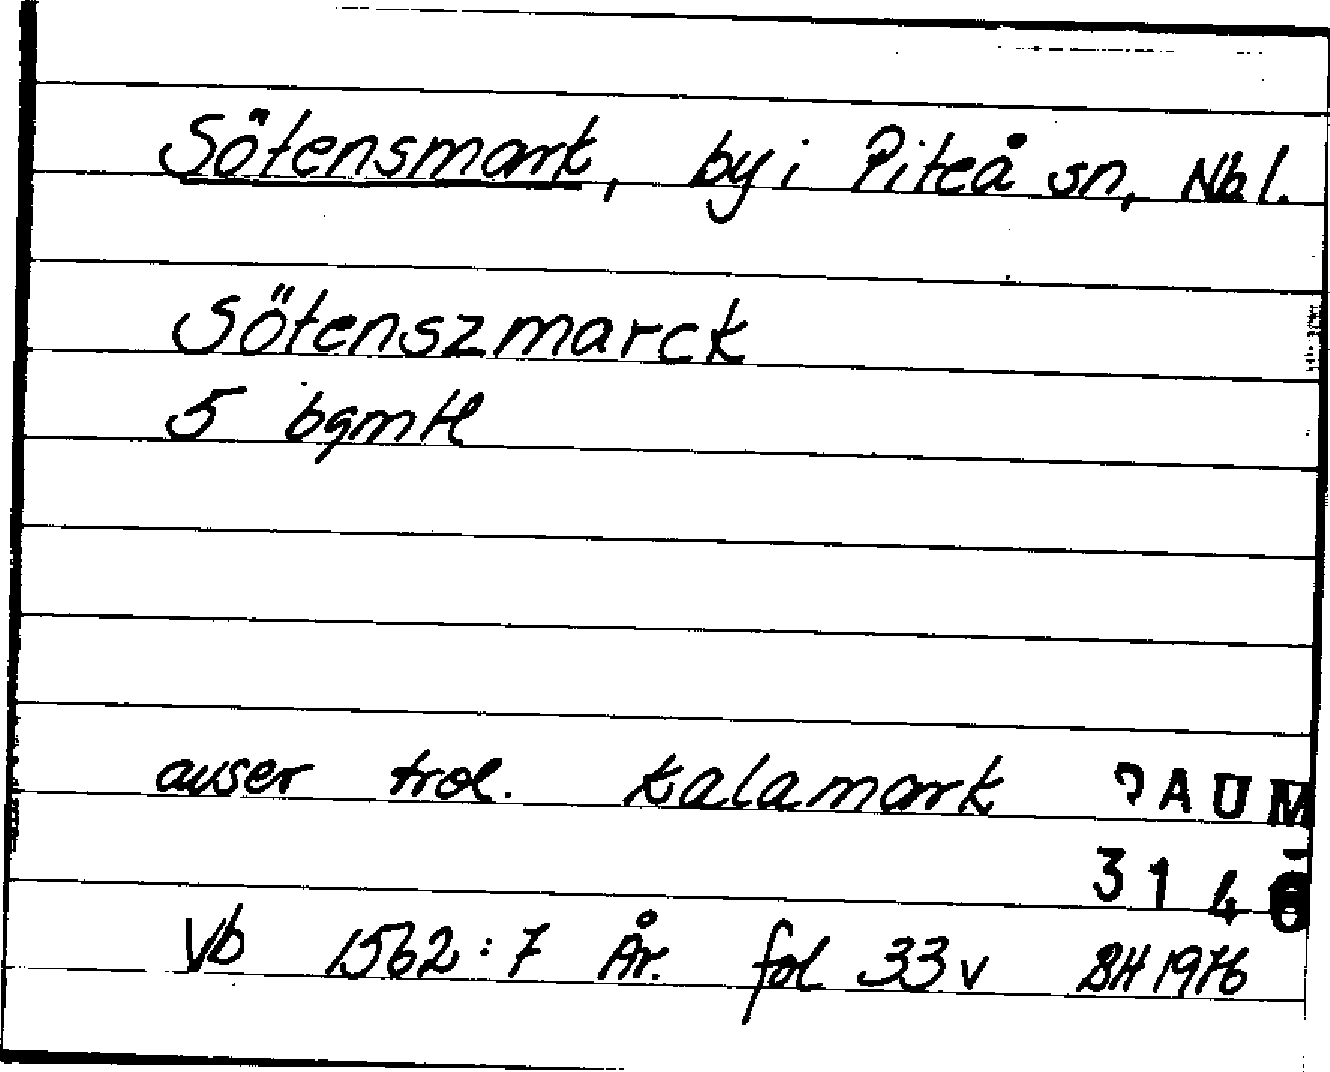 Sötensmark, by i Piteå sn, Nbl.
Sötenszmarck
5 bgmtl
avser trol. Kalamark
DAUM
3146
Vb 1562:7 År. fol 33v BH 1976